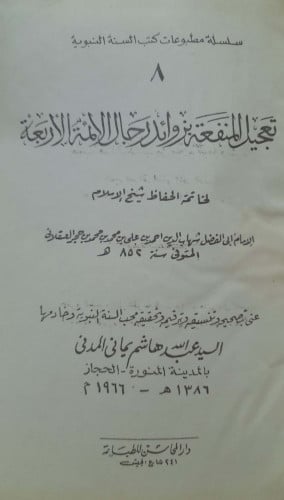 سلسلة مطبوعات كتب السنة النبوية
٨
تعجيل المنفعة بزوائد رجال الأئمة الأربعة
لخاتمة الحفاظ شيخ الإسلام
الإمام أبي الفضل شهاب الدين أحمد بن علي بن محمد بن محمد بن حجر العسقلاني
المتوفى سنة ٨٥٢ هـ
عني بتصحيحه وتنسيقه وترقيمه وتحقيقه محب السنة النبوية وخادمها
السيد عبد الله هاشم يماني المدني
بالمدينة المنورة - الحجاز
١٣٨٦ هـ - ١٩٦٦ م
دار المحاسن للطباعة
٢٤١ شارع الجيش